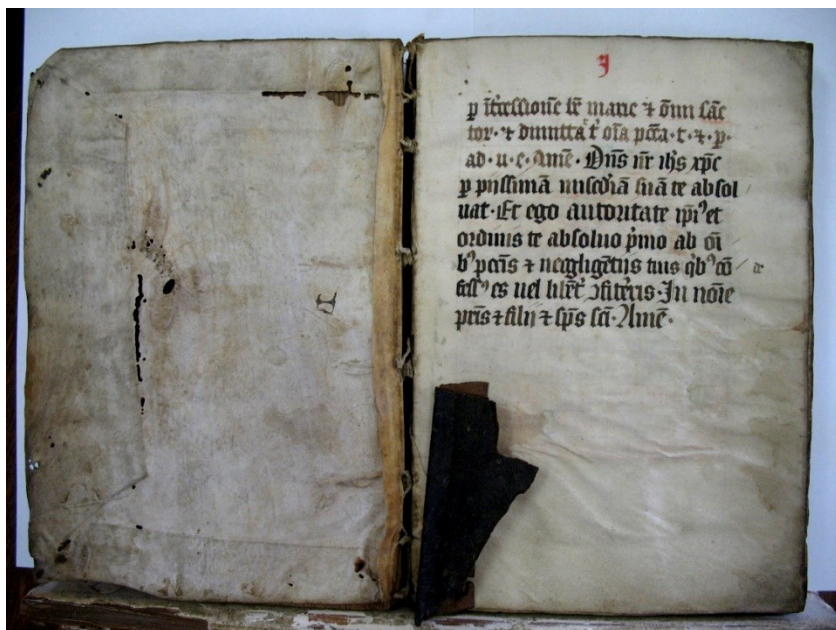 J
p̱ ĩt̃cessione bẽ marie ⁊ õm̃ sãc
tor · ⁊ dimittat̃ t̃ oĩa pc̃c̃a · t · ⁊ · p̱ ·
ad · u · e · Amẽ · Dñs nr̃ ihs xp̃c
p̱ piissimã miscd̃iã suã te absol
uat · Et ego autoritate ip̃iꝰ et
ordinis te absoluo p̃mo ab oĩ
bꝰ pctĩs ⁊ neggligẽtijs tuis qͥbꝰ cõ
fessꝰ es uel libẽt̃ ꝯfiteris · In noĩe
pr̃is ⁊ filij ⁊ sp̃s sc̃i · Amẽ ·